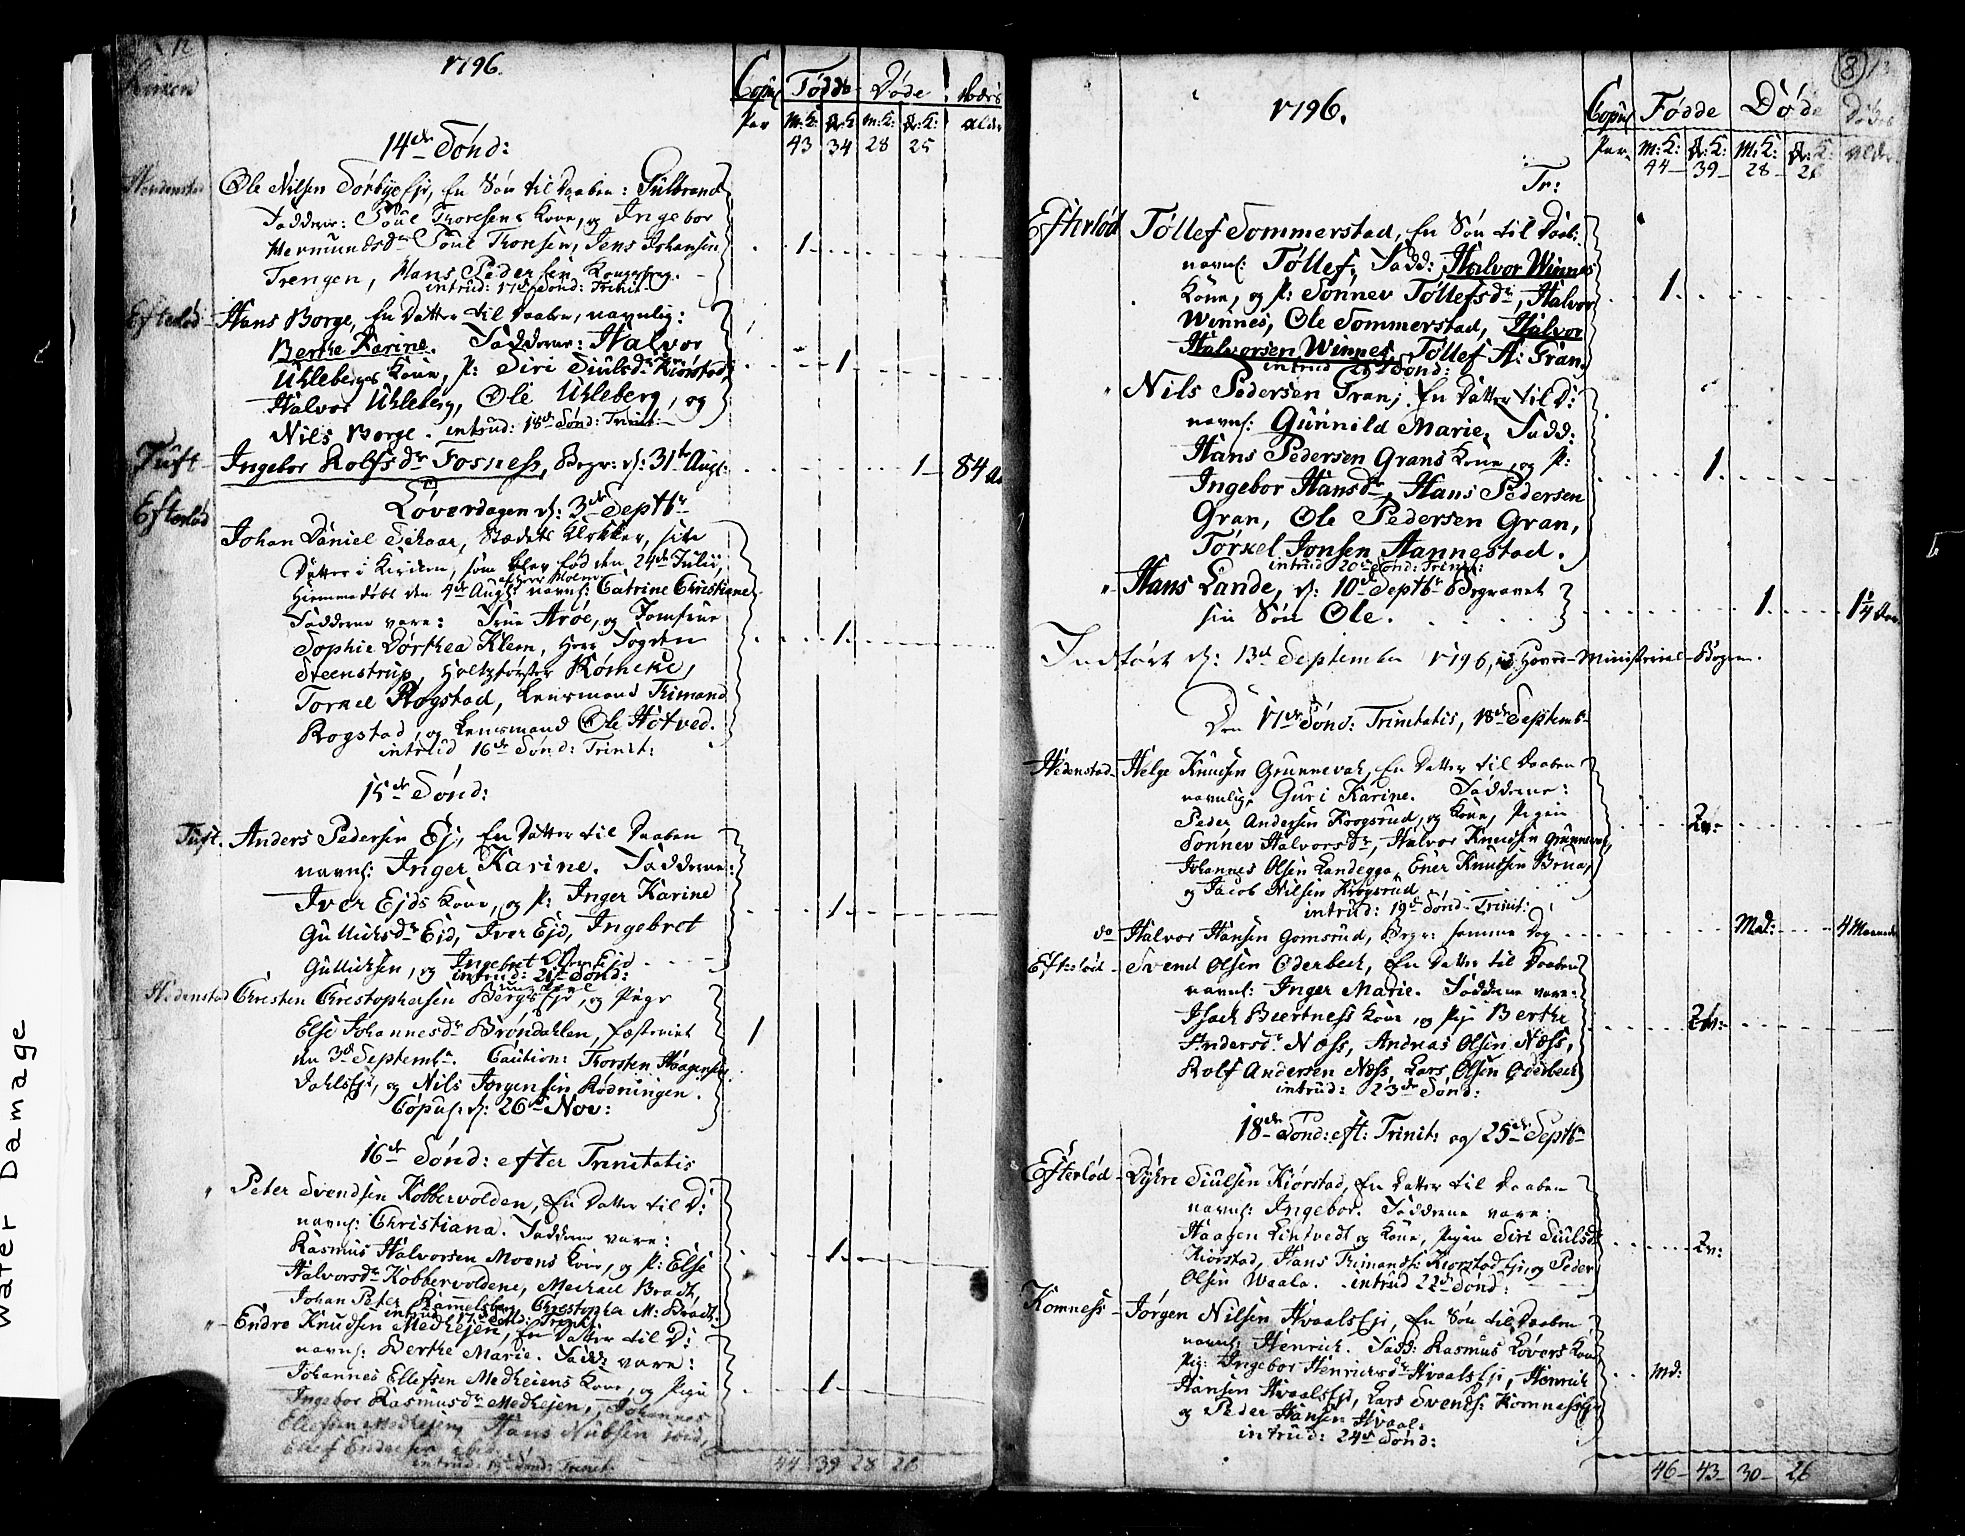 Water Damage
12
1796.
Copul Fødde Døde
Par M:K: Q:K: M:K: Q:K: alder
43 34 28 25
14de Sønd:
Ole Nilsen Sørbye Ejr, En Søn til Daaben: Gulbrand
Faddere: Poul Thoresens Kone, og Ingebor
Hermundsdr, Poul Thorsen, Jens Johansen
Trengen, Hans Pedersen Kongsberg. 1
intrud: 17de Sønd: Trinit
Eftelød Hans Borge, En Datter til Daaben, navnlig:
Berthe Karine. Faddere: Halvor
Uhlebergs Kone, P: Siri Siulsdr Kiørstad, 1
Halvor Uhleberg, Ole Uhleberg, og
Nils Borge. intrud: 18de Sønd: Trinit:
Tuft Ingebor Rolfsdr Fosness, Begr: d: 31te Augt: 1 84 Aar
Eftelød Løverdagen d: 3de Septbr
Johan Daniel Schaar, Stædets Klokker, sin
Datter i Kirken, som blev fød den 24de Julii,
Hiemmedøbt den 4de Augt: navnl: Catrine Christiane
Fadderne vare: Frue Arøe, og Jomfrue
Sophie Dorthea Klem, Herr Fogden 1
Steenstrup, Holtzførster Rømcke,
Torkel Rogstad, Lensmand Trimand
Rogstad, og Lensmand Ole Hotved.
intrud 16de Sønd: Trinit:
15de Sønd:
Tuft. Anders Pedersen Ej, En Datter til Daaben
navnl: Inger Karine. Fadderne:
Iver Ejds Kone, og P: Inger Karine 1
Gulliksdr Eid, Iver Ejd, Ingebret
Gullichsen, og Ingebret Olsen Ejd
intrud: 21de Sønd:
Hedenstad Christen Christophersen Bergs Ejr, og Pige
Else Johannesdr Brøndahlen, fæstenet 1
den 3de Septembr. Caution: Thorsten Haagensen
Dahls Ejr, og Nils Jørgensen Rødningen.
Copul: d: 26de Nov:
16de Sønd: efter Trinitatis
" Peter Svendsen Kobbervolden, En Datter til D:
navnl: Christiana. Fadderne vare:
Rasmus Halvorsen Moens Kone, og P: Else 1
Halvorsdr Kobbervoldene, Michael Bradt,
Johan Peter Rammelsberg, Christopher M: Bradt.
intrud: 17de Sønd: Trinit:
" Endre Knudsen Medhejen, En Datter til D:
navnl: Berthe Marie. Fadd: vare:
Johannes Ellefsen Medheiens Kone, og Pigen 1
Ingebor Rasmusdr Medhejen, Johannes
Ellefsen Medhejen, Hans Nubsen ibid,
Ellef Endresen ibid.
intrud: 19de Sønd: Trinit:
44 39 28 26
8 13
1796.
Copul Fødde Døde Dødes
Par M:K: Q:K: M:K: Q:K: alder
44 39 28 26
Tr:
Efterlød Tollef Sommerstad, En Søn til Daab:
navnl: Tollef, Fadd: Halvor Winnes
Kone, og P: Sønnev Tollefsdr, Halvor 1
Winnes, Ole Sommerstad, Halvor
Halvorsen Winnes, Tollef A: Gran
" Nils Pedersen Gran, En Datter til D:
navnl: Gunnild Marie, Fadd:
Hans Pedersen Grans Kone, og P: 1
Ingebor Hansdr, Hans Pedersen
Gran, Ole Pedersen Gran,
Torkel Jonsen Aannestad.
intrud 20de Sønd: Trinit:
" Hans Lande, d: 10de Septbr Begravet
sin Søn Ole. 1 1 1/4 Aar
Indført d: 13de September 1796, i Hoved-Ministerial-Bogen.
Den 17de Sønd: Trinitatis, 18de Septembr
Hedenstad Helge Knudsen Grunnevald, En Datter til Daaben
navnlig, Guri Karine. Fadderne:
Peder Andersen Krogsrud, og Kone, Pigen
Sønnev Halvorsdr, Halvor Knudsen Grunnevold,
Johannes Olsen Landegga, Ener Knudsen Brua,
og Jacob Nilsen Krogsrud
intrud: 19de Sønd: Trinit:
do Halvor Hansen Gomsrud, Begr: samme Dag 4 Maaneder
Efterlød Svend Olsen Oderbech, En Datter til Daaben
navnl: Inger Marie. Fadderne vare:
Isach Beertness Kone, og Pige Berthe
Andersdr Næss, Andreas Olsen Næss,
Rolf Andersen Næss, Lars Olsen Oddebech
intrud: 23de Sønd:
18de Sønd: eft: Trinit: og 25de Septbr
Efterlød Dykre Siulsen Kiørstad, En Datter til Daaben
navnl: Ingebor. Fadderne vare:
Haagen Lintvedt og Kone, Pigen Siri Siulsdr
Kiørstad, Hans Trimands: Kiørstad Ejr, og Peder
Olsen Waala. intrud 22de Sønd:
Komness Jørgen Nilsen Hvaals Ejr, En Søn til Daaben
navnl: Henrich. Fadd: Rasmus Løvers Kone
Pig: Ingebor Henrichsdr Hvaals Ejr, Henrich
Hansen Hvaals Ejd, Lars Svends: Komness Ejr
og Peder Hansen Hvaal.
intrud: 24de Sønd:
46 43 30 26